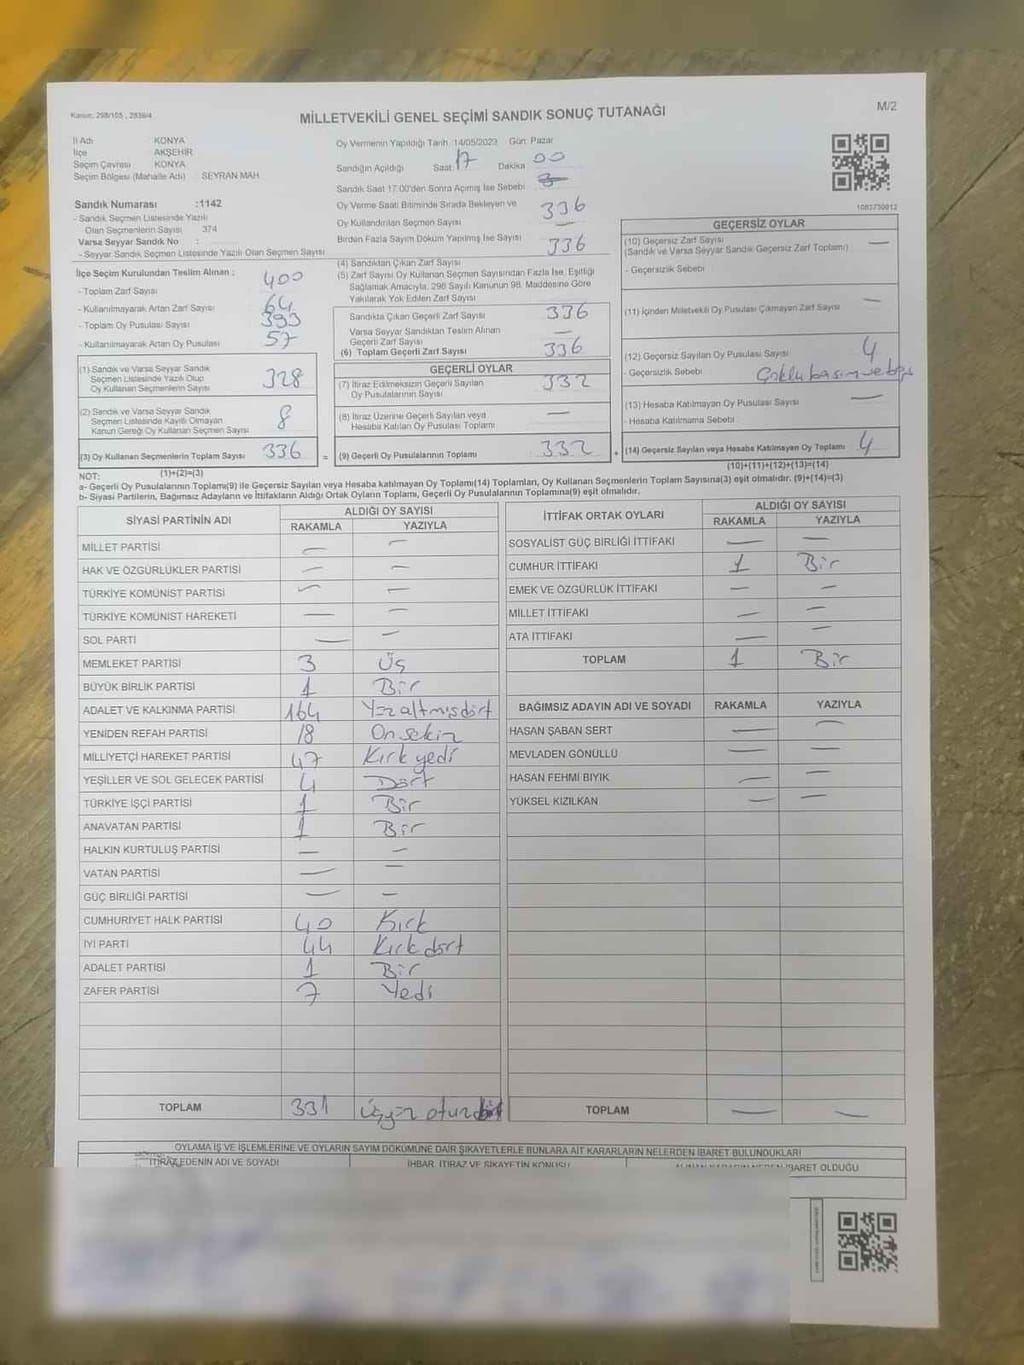 Kanun: 298/105 , 2839/4
MİLLETVEKİLİ GENEL SEÇİMİ SANDIK SONUÇ TUTANAĞI
M/2
İl Adı KONYA
İlçe AKŞEHİR
Seçim Çevresi KONYA
Seçim Bölgesi (Mahalle Adı) SEYRAN MAH.
Oy Vermenin Yapıldığı Tarih :14/05/2023 Gün: Pazar
Sandığın Açıldığı Saat: 17 Dakika 00
Sandık Saat 17.00'den Sonra Açılmış İse Sebebi
Oy Verme Saati Bitiminde Sırada Bekleyen ve
Oy Kullandırılan Seçmen Sayısı 336
Birden Fazla Sayım Döküm Yapılmış İse Sayısı
1083730012
Sandık Numarası :1142
- Sandık Seçmen Listesinde Yazılı
Olan Seçmenlerin Sayısı 374
Varsa Seyyar Sandık No :
- Seyyar Sandık Seçmen Listesinde Yazılı Olan Seçmen Sayısı
İlçe Seçim Kurulundan Teslim Alınan :
- Toplam Zarf Sayısı 400
- Kullanılmayarak Artan Zarf Sayısı 64
- Toplam Oy Pusulası Sayısı 393
- Kullanılmayarak Artan Oy Pusulası 57
(1) Sandık ve Varsa Seyyar Sandık
Seçmen Listesinde Yazılı Olup
Oy Kullanan Seçmenlerin Sayısı 328
(2) Sandık ve Varsa Seyyar Sandık
Seçmen Listesinde Kayıtlı Olmayan
Kanun Gereği Oy Kullanan Seçmen Sayısı 8
(3) Oy Kullanan Seçmenlerin Toplam Sayısı 336 =
(1)+(2)=(3)
(4) Sandıktan Çıkan Zarf Sayısı 336
(5) Zarf Sayısı Oy Kullanan Seçmen Sayısından Fazla İse, Eşitliği
Sağlamak Amacıyla, 298 Sayılı Kanunun 98. Maddesine Göre
Yakılarak Yok Edilen Zarf Sayısı
Sandıkta Çıkan Geçerli Zarf Sayısı 336
Varsa Seyyar Sandıktan Teslim Alınan
Geçerli Zarf Sayısı —
(6) Toplam Geçerli Zarf Sayısı 336
GEÇERLİ OYLAR
(7) İtiraz Edilmeksizin Geçerli Sayılan
Oy Pusulalarının Sayısı 332
(8) İtiraz Üzerine Geçerli Sayılan veya
Hesaba Katılan Oy Pusulası Toplamı —
(9) Geçerli Oy Pusulalarının Toplamı 332 +
GEÇERSİZ OYLAR
(10) Geçersiz Zarf Sayısı —
(Sandık ve Varsa Seyyar Sandık Geçersiz Zarf Toplamı)
- Geçersizlik Sebebi
(11) İçinden Milletvekili Oy Pusulası Çıkmayan Zarf Sayısı —
(12) Geçersiz Sayılan Oy Pusulası Sayısı 4
- Geçersizlik Sebebi
(13) Hesaba Katılmayan Oy Pusulası Sayısı —
- Hesaba Katılmama Sebebi
(14) Geçersiz Sayılan veya Hesaba Katılmayan Oy Toplamı 4
(10)+(11)+(12)+(13)=(14)
NOT:
a- Geçerli Oy Pusulalarının Toplamı(9) ile Geçersiz Sayılan veya Hesaba katılmayan Oy Toplamı(14) Toplamları, Oy Kullanan Seçmenlerin Toplam Sayısına(3) eşit olmalıdır. (9)+(14)=(3)
b- Siyasi Partilerin, Bağımsız Adayların ve İttifakların Aldığı Ortak Oyların Toplamı, Geçerli Oy Pusulalarının Toplamına(9) eşit olmalıdır.
SİYASİ PARTİNİN ADI ALDIĞI OY SAYISI
RAKAMLA YAZIYLA
MİLLET PARTİSİ — —
HAK VE ÖZGÜRLÜKLER PARTİSİ — —
TÜRKİYE KOMÜNİST PARTİSİ — —
TÜRKİYE KOMÜNİST HAREKETİ — —
SOL PARTİ — —
MEMLEKET PARTİSİ 3 Üç
BÜYÜK BİRLİK PARTİSİ 1 Bir
ADALET VE KALKINMA PARTİSİ 164 Yüzaltmışdört
YENİDEN REFAH PARTİSİ 18 Onsekiz
MİLLİYETÇİ HAREKET PARTİSİ 47 Kırk yedi
YEŞİLLER VE SOL GELECEK PARTİSİ 4 Dört
TÜRKİYE İŞÇİ PARTİSİ 1 Bir
ANAVATAN PARTİSİ 1 Bir
HALKIN KURTULUŞ PARTİSİ — —
VATAN PARTİSİ — —
GÜÇ BİRLİĞİ PARTİSİ — —
CUMHURİYET HALK PARTİSİ 40 Kırk
İYİ PARTİ 44 Kırk dört
ADALET PARTİSİ 1 Bir
ZAFER PARTİSİ 7 Yedi
TOPLAM 331
İTTİFAK ORTAK OYLARI ALDIĞI OY SAYISI
RAKAMLA YAZIYLA
SOSYALİST GÜÇ BİRLİĞİ İTTİFAKI — —
CUMHUR İTTİFAKI 1 Bir
EMEK VE ÖZGÜRLÜK İTTİFAKI — —
MİLLET İTTİFAKI — —
ATA İTTİFAKI — —
TOPLAM 1 Bir
BAĞIMSIZ ADAYIN ADI VE SOYADI RAKAMLA YAZIYLA
HASAN ŞABAN SERT — —
MEVLADEN GÖNÜLLÜ — —
HASAN FEHMİ BIYIK — —
YÜKSEL KIZILKAN — —
TOPLAM — —
OYLAMA İŞ VE İŞLEMLERİNE VE OYLARIN SAYIM DÖKÜMÜNE DAİR ŞİKAYETLERLE BUNLARA AİT KARARLARIN NELERDEN İBARET BULUNDUKLARI
İTİRAZ EDENİN ADI VE SOYADI İHBAR, İTİRAZ VE ŞİKAYETİN KONUSU İBARET OLDUĞU